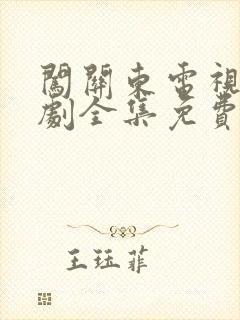 闖關東電視
劇全集免費
王珏菲